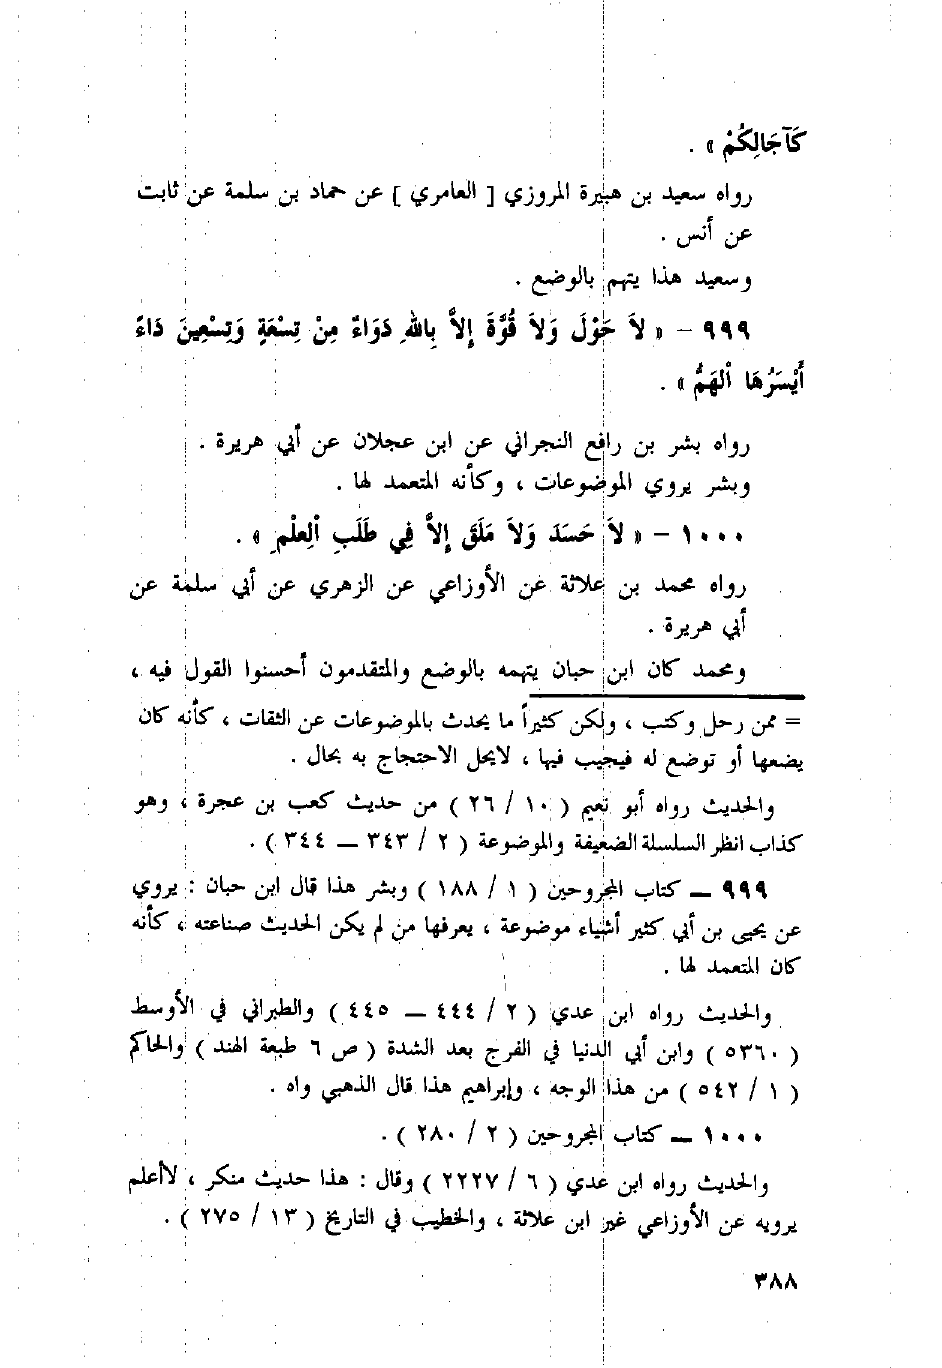 كَآجَالِكُمْ » .
رواه سعيد بن هبيرة المروزي [ العامري ] عن حماد بن سلمة عن ثابت
عن أنس .
وسعيد هذا يتهم بالوضع .
٩٩٩ – « لاَ حَوْلَ وَلاَ قُوَّةَ إِلاَّ بِاللهِ دَوَاءٌ مِنْ تِسْعَةٍ وَتِسْعِينَ دَاءً
أَيْسَرُهَا اَلْهَمُّ » .
رواه بشر بن رافع النجراني عن ابن عجلان عن أبي هريرة .
وبشر يروي الموضوعات ، وكأنه المتعمد لها .
١٠٠٠ – « لاَ حَسَدَ وَلاَ مَلَقَ إِلاَّ فِي طَلَبِ اَلْعِلْمِ » .
رواه محمد بن علاثة عن الأوزاعي عن الزهري عن أبي سلمة عن
أبي هريرة .
ومحمد كان ابن حبان يتهمه بالوضع والمتقدمون أحسنوا القول فيه ،
= ممن رحل وكتب ، ولكن كثيراً ما يحدث بالموضوعات عن الثقات ، كأنه كان
يضعها أو توضع له فيجيب فيها ، لايحل الاحتجاج به بحال .
والحديث رواه أبو نعيم ( ١٠ / ٢٦ ) من حديث كعب بن عجرة ، وهو
كذاب انظر السلسلة الضعيفة والموضوعة ( ٢ / ٣٤٣ – ٣٤٤ ) .
٩٩٩ – كتاب المجروحين ( ١ / ١٨٨ ) وبشر هذا قال ابن حبان : يروي
عن يحيى بن أبي كثير أشياء موضوعة ، يعرفها من لم يكن الحديث صناعته ، كأنه
كان المتعمد لها .
والحديث رواه ابن عدي ( ٢ / ٤٤٤ – ٤٤٥ ) والطبراني في الأوسط
( ٥٣٦٠ ) وابن أبي الدنيا في الفرج بعد الشدة ( ص ٦ طبعة الهند ) والحاكم
( ١ / ٥٤٢ ) من هذا الوجه ، وإبراهيم هذا قال الذهبي واه .
١٠٠٠ – كتاب المجروحين ( ٢ / ٢٨٠ ) .
والحديث رواه ابن عدي ( ٦ / ٢٢٢٧ ) وقال : هذا حديث منكر ، لاأعلم
يرويه عن الأوزاعي غير ابن علاثة ، والخطيب في التاريخ ( ١٣ / ٢٧٥ ) .
٣٨٨